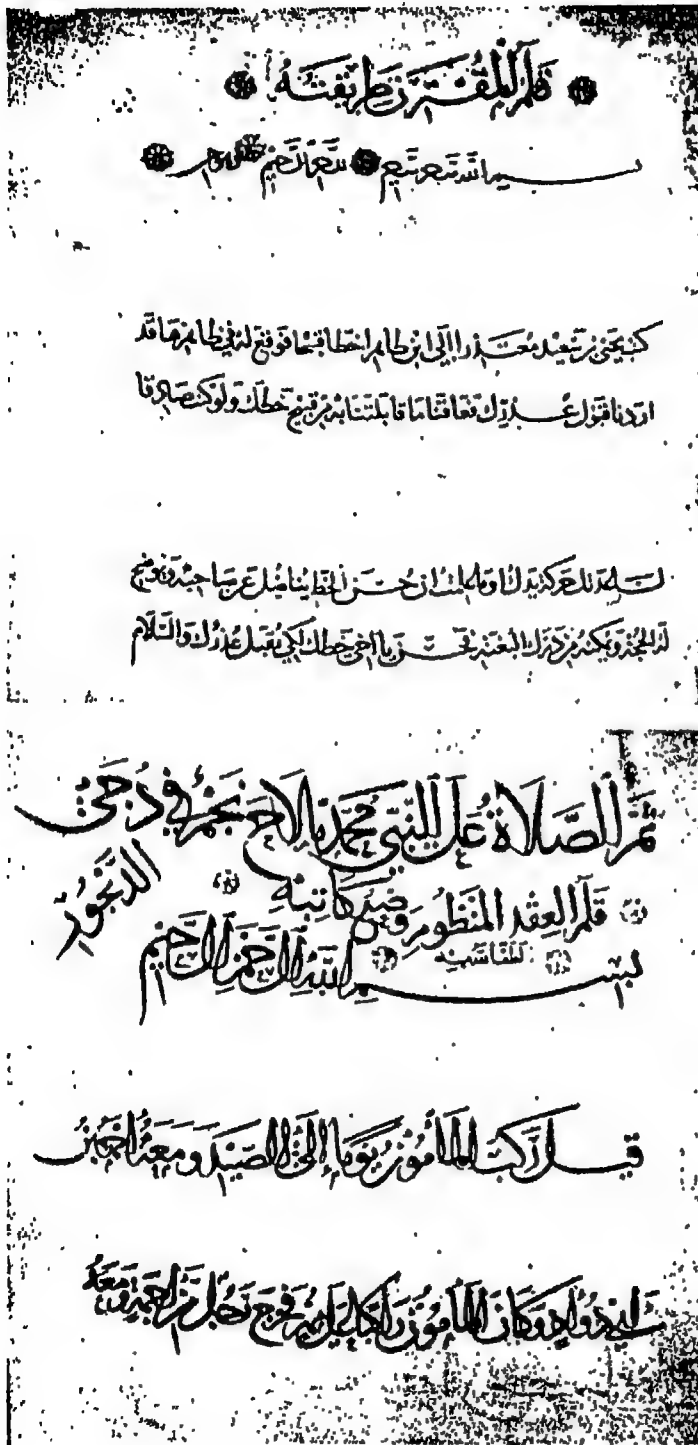 قلم المقترن طريقته
بسم الله الرحمن الرحيم
كتب يحيى بن سعيد معتذرا إلى ابن طاهر خطا قبيحا فوقع له ابن طاهر قد
اردنا قبول عذرك فعاقنا ما قابلتنا به من قبيح خطك ولو كنت صادقا
لساعدتك حركة يدك اوما علمت ان حسن الخط يناضل عن صاحبه ويوضح
له الحجة ويمكنه من درك البغية تحسن يا اخي خطك لكي يقبل عذرك والسلام
ثم الصلاة على النبي محمد ما لاح نجم في دجى
الديجور
قلم العقد المنظوم كاتبه
بسم الله الرحمن الرحيم
قيل ركب المأمون يوما إلى الصيد ومعه احمد بن
ابي دؤاد وكان المأمون راكبا على فخرج رجل من ومعه